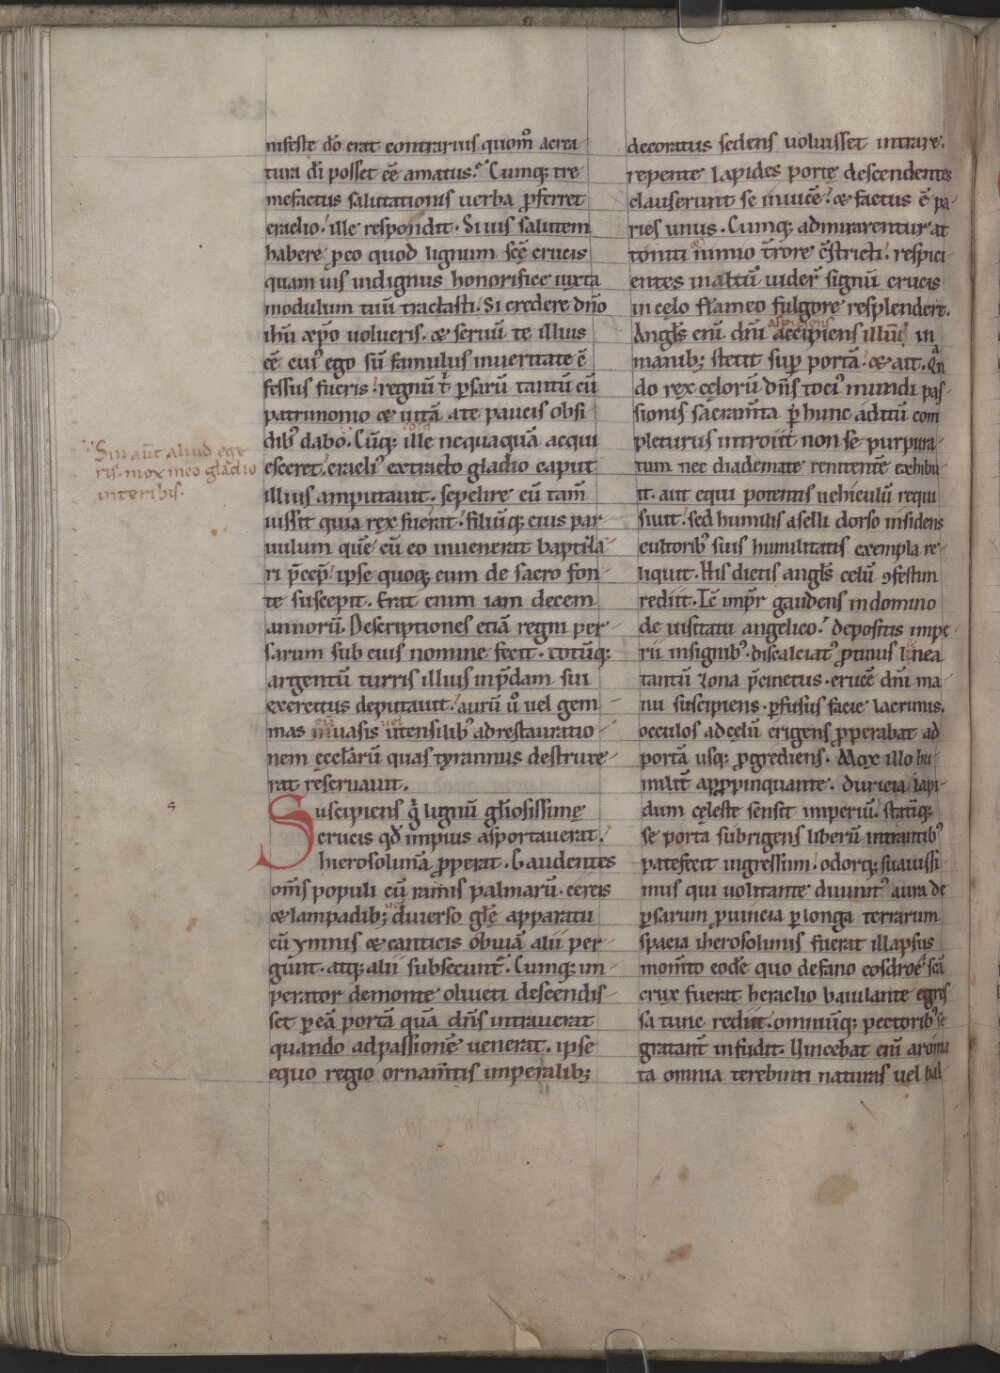 nifeste dō erat contrarius quom̄ acrea
tura dī posset eē amatus. Cumq; tre
mefactus salutationis uerba p̄ferret
eraclio. ille respondit. Si uis salutem
habere p eo quod lignum scē crucis
quam uis indignus honorifice iuxta
modulum tuū tractasti. Si credere dn̄o
ihū xp̄o uolueris. & seruū te illius
eē cui' ego sū famulus inueritate c̄
fessus fueris. regnū t' psarū tantū cū
patrimonio & uitā ate paucis obsi
dib' dabo. Cūq; ille nequaquā acqui
esceret. eracli' extracto gladio caput
illius amputauit. sepelire eū tam̄
iussit quia rex fuerat. filiūq; eius par
uulum quē cū eo inuenerat baptiza
ri p̄cep̄. ipse quoq; eum de sacro fon
te suscepit. Erat enim iam decem
annorū. Descriptiones etiā regni per
sarum sub eius nomine fecit. totūq;
argentū turris illius inp̄dam sui
exercitus deputauit. aurū u° uel gem
mas inuasis uel utensilib' adrestauratio
nem eccl̄arū quas tyrannus destruxe
rat reseruauit.
Suscipiens g° lignū gl̄iosissime
crucis qd̄ impius asportauerat.
hierosolimā pperat. Gaudentes
om̄s populi cū ramis palmarū. cereis
& lampadib; uel diuerso glē apparatu
cū ymnis & canticis obuiā alii per
gunt. atq; alii subsecunt̄. Cumq; im
perator demonte oliueti descendis
set p eā portā quā dn̄s intrauerat
quando adpassionē uenerat. ipse
equo regio ornam̄tis imperialib;
Sin aut̄ aliud ege
ris. mox meo gladio
interibis.
decoratus sedens uoluisset intrare.
repente lapides porte descendentes
clauserunt se inuicē. & factus ē pa
ries unus. Cumq; admirarentur at
toniti nimio tr̄rore c̄stricti. respici
entes inaltū uider̄ signū crucis
in celo flāmeo fulgore resplendere.
Angl̄s enī dn̄i accipiens illud in
aspiciens
manib; stetit sup portā. & ait. Qn
do rex celorū dn̄s toci' mundi pas
sionis sacram̄ta p hunc aditū com
pleturus introiit non se purpura
tum nec diademate renitentē exhibu
it. aut equi potentis uehiculū requi
siuit. sed humilis aselli dorso insidens
cultorib' suis humilitatis exempla re
liquit. His dictis angl̄s celū 9festim
rediit. Tc̄ impr̄ gaudens indomino
de uisitatu angelico. depositis impe
rii insignib'. discalciat' ptinus linea
tantū zona p̄cinctus. crucē dn̄i ma
nu suscipiens. pfusus facie lacrimis.
occulos adcelū erigens pperabat ad
portā usq; pgrediens. Mox illo hu
milit̄ appropinquante. duricia lapi
dum celeste sensit imperiū. statiq;
se porta subrigens liberū intrantib'
patefecit ingressum. odorq; suauissi
mus qui uolitante diuinit' aura de
psarum puincia p longa terrarum
spacia iherosolimis fuerat illapsus
mom̄to eodē quo defano cosdroe scā
crux fuerat heraclio baiulante egres
sa tunc rediit. omniūq; pectorib' se
gratant̄ infudit. Uincebat enī aroma
ta omnia terebinti naturas uel bal